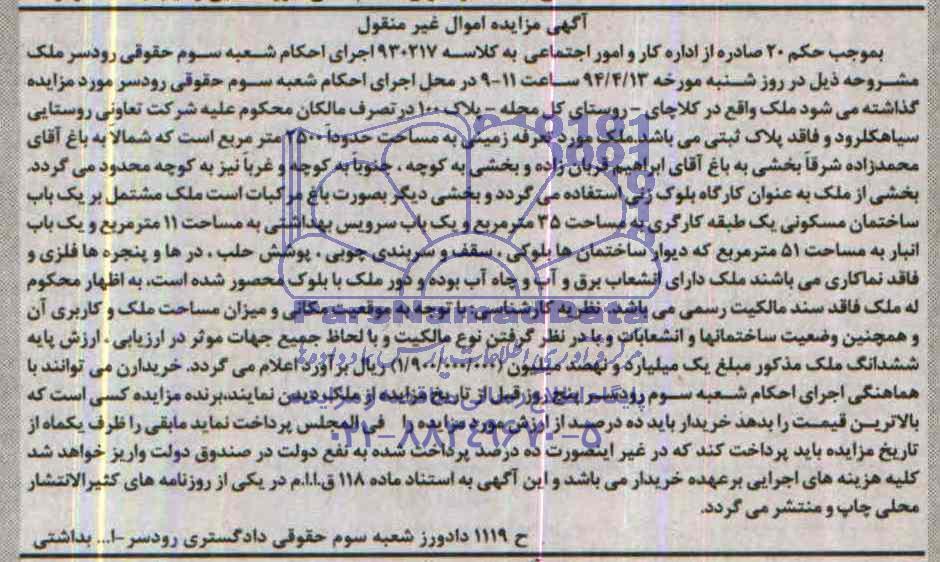 آگهی مزایده اموال غیر منقول
بموجب حکم ۲۰ صادره از اداره کار و امور اجتماعی به کلاسه ۹۳۰۲۱۷ اجرای احکام شعبه سوم حقوقی رودسر ملک
مشروحه ذیل در روز شنبه مورخه ۹۴/۴/۱۳ ساعت ۱۱-۹ در محل اجرای احکام شعبه سوم حقوقی رودسر مورد مزایده
گذاشته می شود ملک واقع در کلاچای - روستای کل محله - پلاک ۱۰۰ در تصرف مالکان محکوم علیه شرکت تعاونی روستایی
سیاهکلرود و فاقد پلاک ثبتی می باشد. ملک مورد تعرفه زمینی به مساحت حدوداً ۲۵۰۰ متر مربع است که شمالا به باغ آقای
محمدزاده شرقاً بخشی به باغ آقای ابراهیم قربان زاده و بخشی به کوچه ، جنوباً به کوچه و غرباً نیز به کوچه محدود می گردد.
بخشی از ملک به عنوان کارگاه بلوک زنی استفاده می گردد و بخشی دیگر بصورت باغ مرکبات است ملک مشتمل بر یک باب
ساختمان مسکونی یک طبقه کارگری به مساحت ۳۵ مترمربع و یک باب سرویس بهداشتی به مساحت ۱۱ مترمربع و یک باب
انبار به مساحت ۵۱ مترمربع که دیوار ساختمان ها بلوکی ، سقف و سربندی چوبی ، پوشش حلب ، در ها و پنجره ها فلزی و
فاقد نماکاری می باشند ملک دارای انشعاب برق و آب و چاه آب بوده و دور ملک با بلوک محصور شده است. به اظهار محکوم
له ملک فاقد سند مالکیت رسمی می باشد. نظریه کارشناسی: با توجه به موقعیت مکانی و میزان مساحت ملک و کاربری آن
و همچنین وضعیت ساختمانها و انشعابات و با در نظر گرفتن نوع مالکیت و با لحاظ جمیع جهات موثر در ارزیابی ، ارزش پایه
ششدانگ ملک مذکور مبلغ یک میلیارد و نهصد میلیون (۱/۹۰۰/۰۰۰/۰۰۰) ریال برآورد اعلام می گردد. خریدارن می توانند با
هماهنگی اجرای احکام شعبه سوم رودسر پنج روز قبل از تاریخ مزایده از ملک دیدن نمایند، برنده مزایده کسی است که
بالاترین قیمت را بدهد خریدار باید ده درصد از ارزش مورد مزایده را فی المجلس پرداخت نماید مابقی را ظرف یکماه از
تاریخ مزایده باید پرداخت کند که در غیر اینصورت ده درصد پرداخت شده به نفع دولت در صندوق دولت واریز خواهد شد
کلیه هزینه های اجرایی برعهده خریدار می باشد و این آگهی به استناد ماده ۱۱۸ ق.ا.ا.م در یکی از روزنامه های کثیرالانتشار
محلی چاپ و منتشر می گردد.
ح ۱۱۱۹ دادورز شعبه سوم حقوقی دادگستری رودسر -ا... بداشتی
ParsNamadData
مرکز فرآوری اطلاعات پارس نماد داده ها
۰۲۱-۸۸۳۴۹۶۷۰-۵